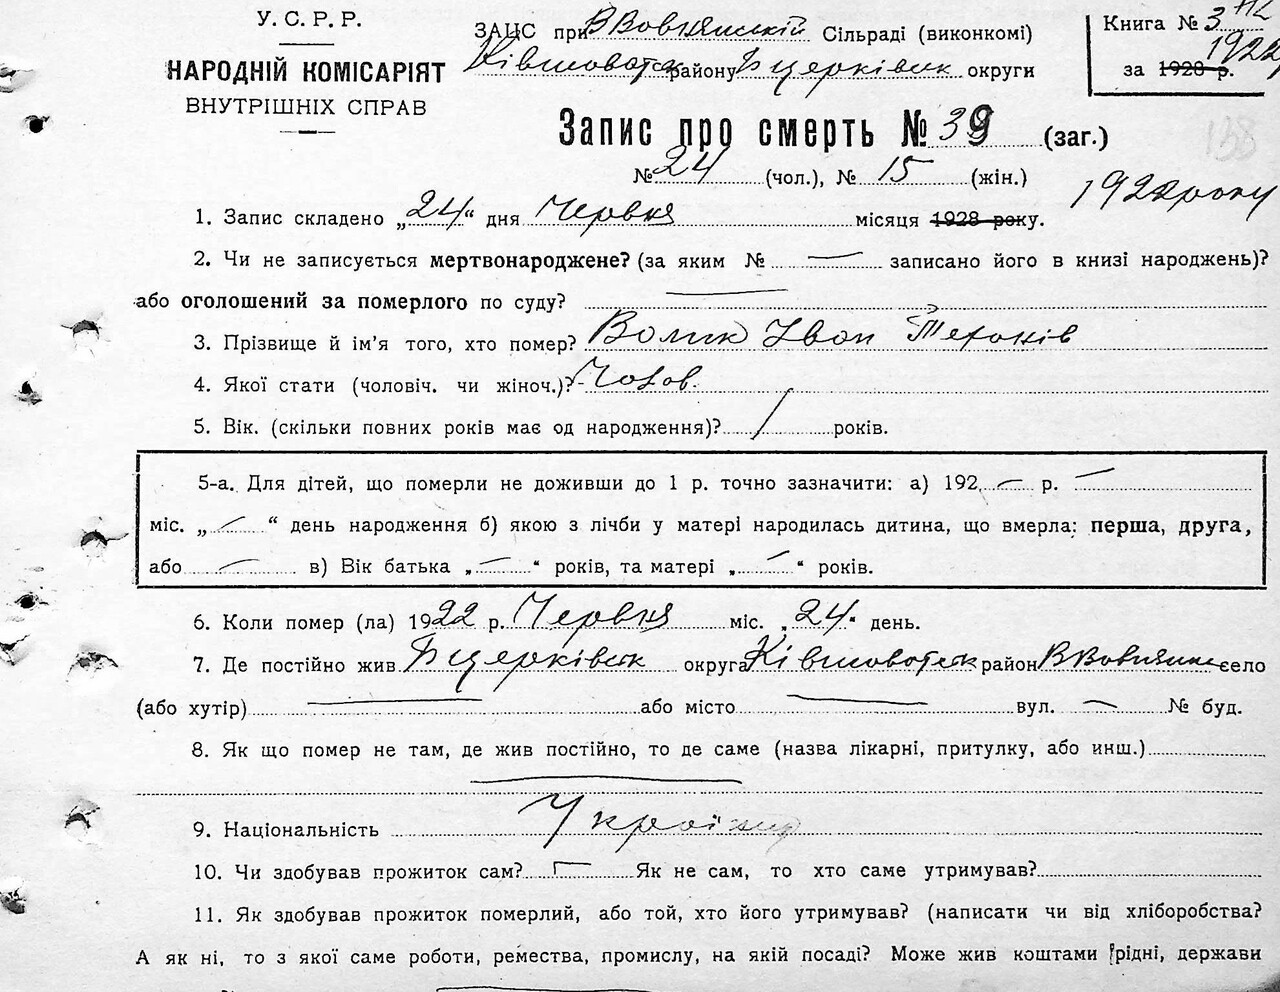 У.С.Р.Р.
НАРОДНІЙ КОМІСАРІЯТ
ВНУТРІШНІХ СПРАВ
ЗАЦС при В Вовнянській Сільраді (виконкомі)
району Бцерківск округи
Книга № 3
1922
за 1928 р.
Запис про смерть № 39 (заг.)
138
№ 24 (чол.), № 15 (жін.)
1922 року
1. Запис складено „24“ дня Червня місяця 1928 року.
2. Чи не записується мертвонароджене? (за яким № — записано його в книзі народжень)?
або оголошений за померлого по суду?
3. Прізвище й ім’я того, хто помер? Волик Іван
4. Якої стати (чоловіч. чи жіноч.)? Чолов.
5. Вік. (скільки повних років має од народження)? / років.
5-а. Для дітей, що померли не доживши до 1 р. точно зазначити: а) 192 — р. —
міс. „ — “ день народження б) якою з лічби у матері народилась дитина, що вмерла: перша, друга,
або — в) Вік батька „ — “ років, та матері „ — “ років.
6. Коли помер (ла) 1922 р. Червня міс. „24“ день.
7. Де постійно жив Бцерківск округа район село
(або хутір) — або місто — вул. — № буд.
8. Як що помер не там, де жив постійно, то де саме (назва лікарні, притулку, або инш.)
9. Національність Україн
10. Чи здобував прожиток сам? — Як не сам, то хто саме утримував?
11. Як здобував прожиток померлий, або той, хто його утримував? (написати чи від хліборобства?
А як ні, то з якої саме роботи, ремества, промислу, на якій посаді? Може жив коштами рідні, держави